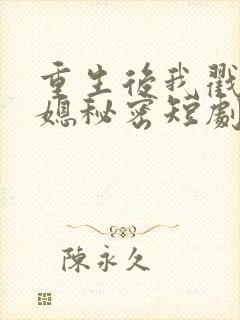 重生後我戳
媳秘密短劇
陳永久